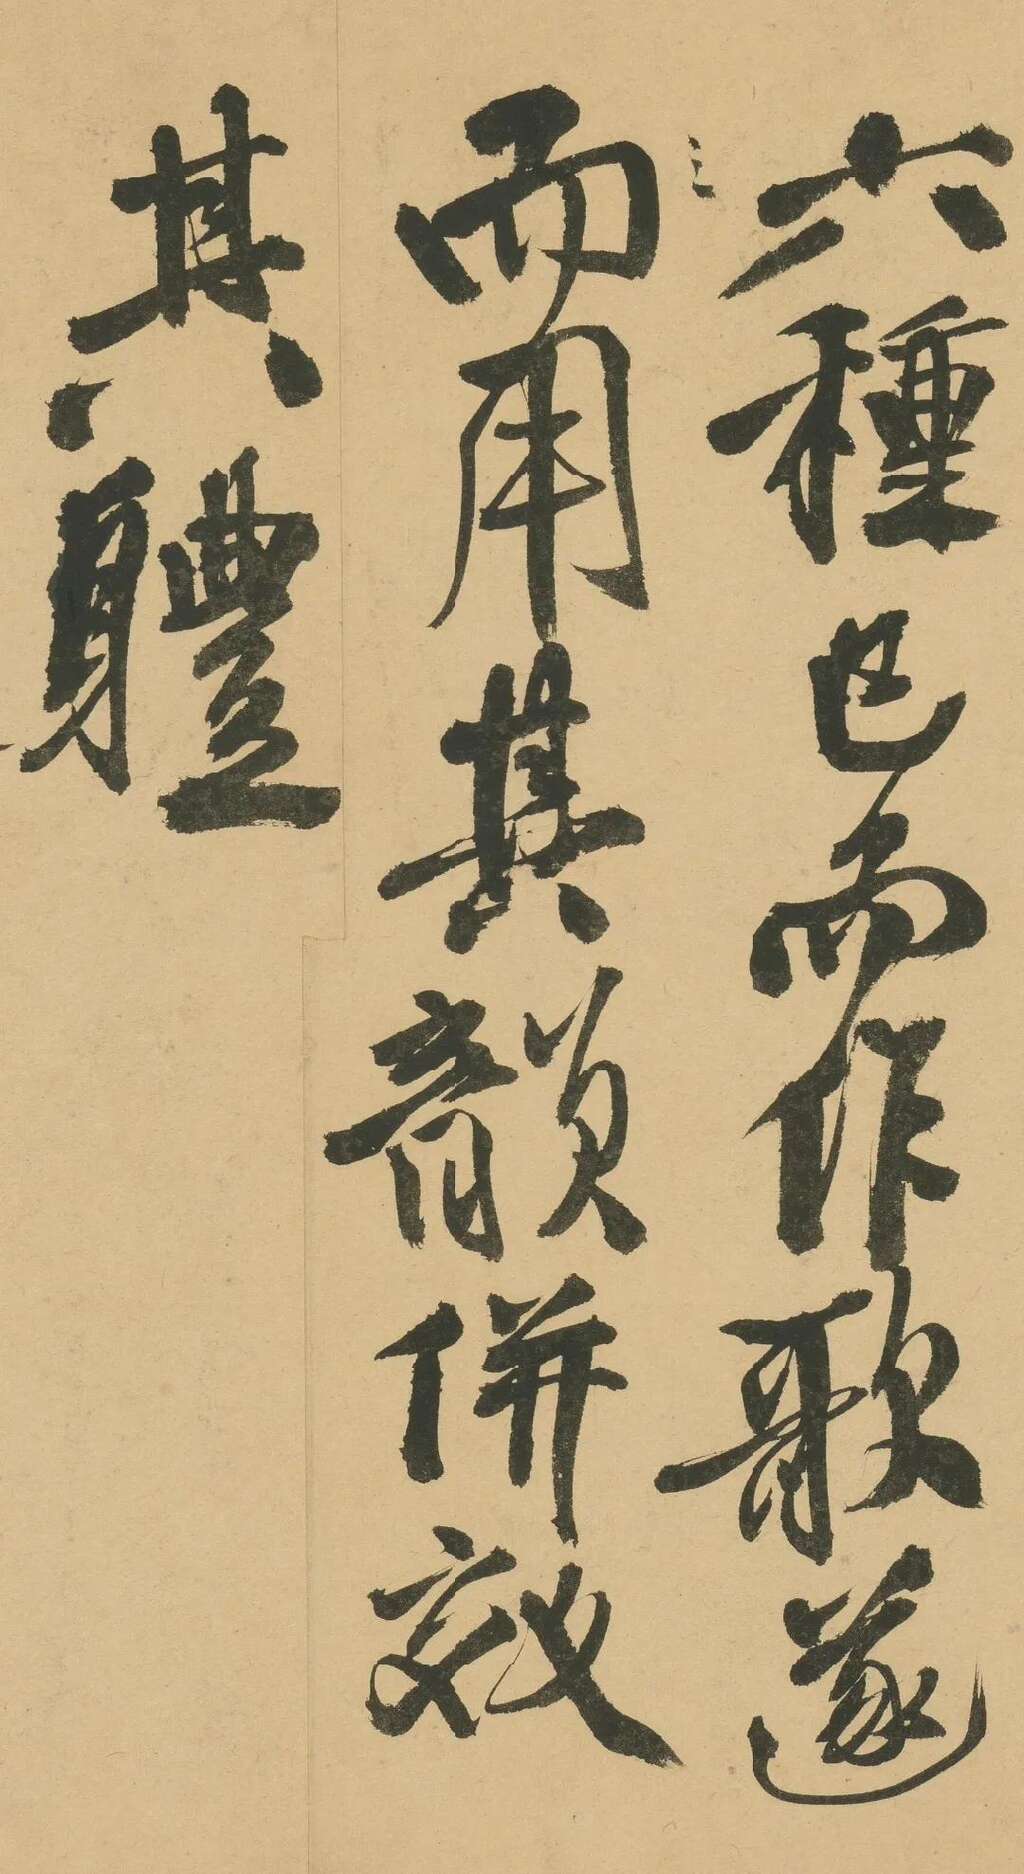 六種已而作歌遂
而用其韻併效
其軆